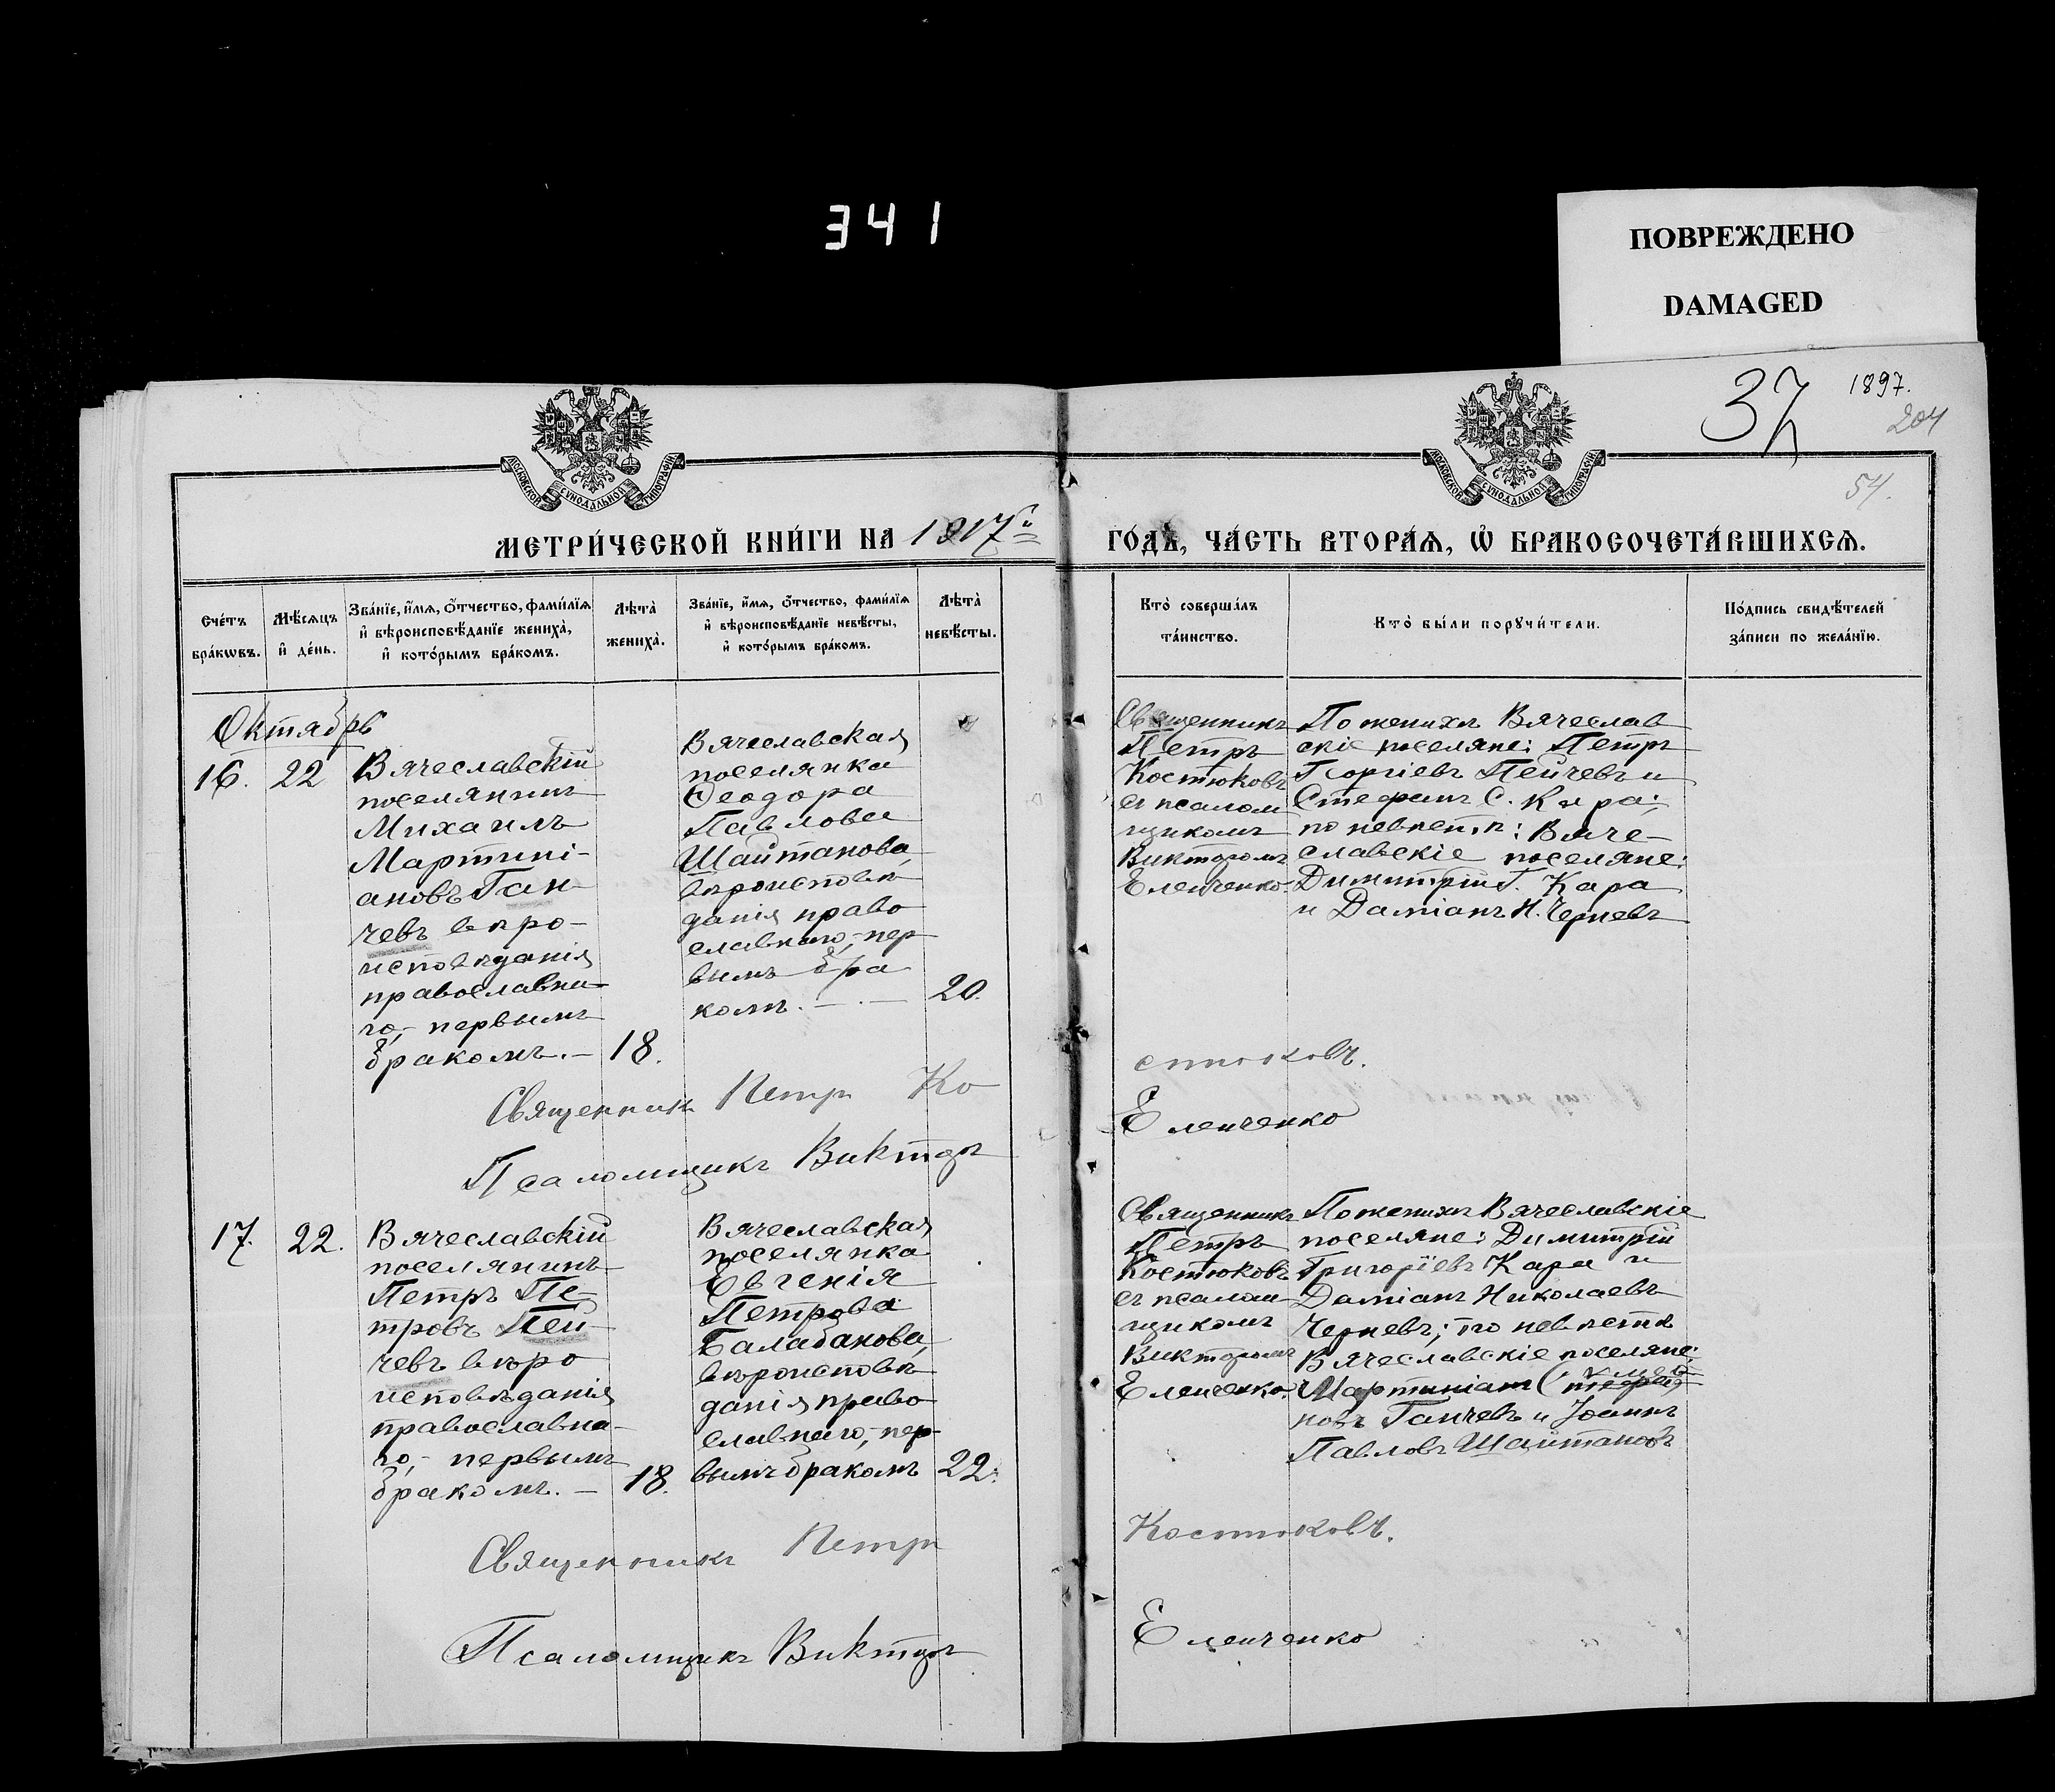 341
ПОВРЕЖДЕНО
DAMAGED
37
1897.
204
54.
МОСКОВСКОЙ СУНОДАЛЬНОЙ ТИПОГРАФІИ
МОСКОВСКОЙ СУНОДАЛЬНОЙ ТИПОГРАФІИ
МЕТРИ́ЧЕСКОЙ КНИ́ГИ НА 1897й ГО́ДЪ, ЧА́СТЬ ВТОРА́Я, Ѡ БРАКОСОЧЕТА́ВШИХСѦ.
Сче́тъ
бра́кѡвъ.
Мѣ́сяцъ
и҆ де́нь.
Зва́нїе, и҆́мя, ѻ҆́тчество, фами́лїя
и҆ вѣроисповѣ́данїе жениха̀,
и҆ кото́рымъ бра́комъ.
Лѣта̀
жениха̀.
Зва́нїе, и҆́мя, ѻ҆́тчество, фами́лїя
и҆ вѣроисповѣ́данїе невѣ́сты,
и҆ кото́рымъ бра́комъ.
Лѣта̀
невѣ́сты.
Кто̀ соверша́лъ
та́инство.
Кто̀ бы́ли порꙋчи́тели.
По́дпись свидѣ́телей
за́писи по жела́нїю.
Октябрь
16.
22
Вячеславскій
поселянинъ
Михаилъ
Мартині-
ановъ Ган-
чевъ веро-
исповѣданія
православна-
го, первымъ
бракомъ. —
18.
Вячеславская
поселянка
Ѳеодора
Павлова
Шайтанова,
вѣроисповѣ
данія право
славнаго, пер
вымъ бра
комъ. — . —
20.
Священникъ
Петръ
Костюковъ
съ псалом
щикомъ
Викторомъ
Еленченко.
По женихѣ Вячеслав
скіе поселяне: Петръ
Георгіевъ Пейчевъ и
Стефанъ С. Кара;
по невѣстѣ: Вяче-
славскіе поселяне:
Димитрій Г. Кара
и Даміанъ Н. Черневъ
Священникъ Петръ Костюковъ.
Псаломщикъ Викторъ Еленченко
17.
22.
Вячеславскій
поселянинъ
Петръ Пе-
тровъ Пей-
чевъ вѣро
исповѣданія
православна-
го, - первымъ
бракомъ. —
18.
Вячеславская
поселянка
Евгенія
Петрова
Балабанова,
вѣроисповѣ
данія право
славнаго, - пер-
вымъ бракомъ
22.
Священникъ
Петръ
Костюковъ
съ псалом-
щикомъ
Викторомъ
Еленченко.
По женихѣ Вячеславскіе
поселяне: Димитрій
Григоріевъ Кара и
Даміанъ Николаевъ
Черневъ; по невѣстѣ
Вячеславскіе поселяне:
Мартиніанъ
новъ Ганчевъ и Іоаннъ
Павловъ Шайтановъ
Священникъ Петръ Костюковъ.
Псаломщикъ Викторъ Еленченко